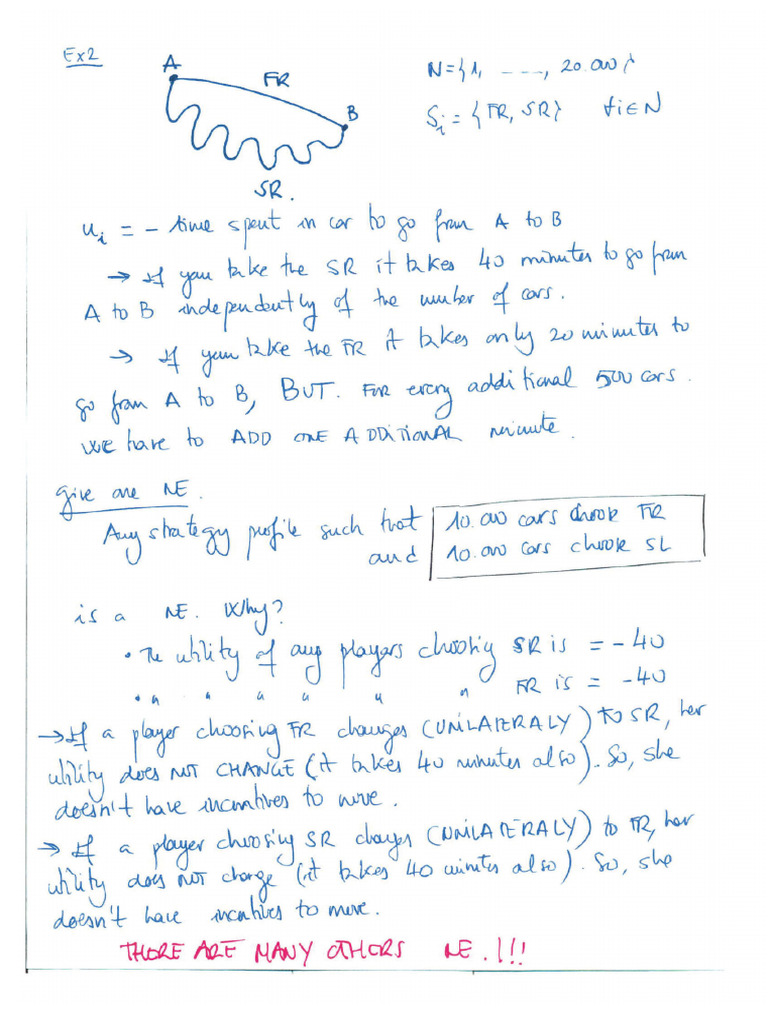 Ex2
A
FR
B
SR.
N={1, ----, 20.000}
Si = {FR, SR} ∀i∈N
ui = - time spent in car to go from A to B
→ If you take the SR it takes 40 minutes to go from
A to B independently of the number of cars.
→ If you take the FR it takes only 20 minutes to
go from A to B, BUT. FOR every additional 500 cars.
we have to ADD ONE ADDITIONAL minute.
give one NE.
Any strategy profile such that 10.000 cars choose FR
and 10.000 cars choose SL
is a NE. Why?
• The utility of any players choosing SR is = -40
• " " " " " " FR is = -40
→ If a player choosing FR changes (UNILATERALY) to SR, her
utility does NOT CHANGE (it takes 40 minutes also). So, she
doesn't have incentives to move.
→ If a player choosing SR changes (UNILATERALY) to FR, her
utility does NOT change (it takes 40 minutes also). So, she
doesn't have incentives to move.
THERE ARE MANY OTHERS NE.!!!